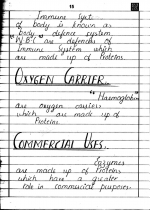 15
Immune Syst
of body is known as
body defence system
W.B.C are defences of
Immune System which
are made up of Proteins.
OXYGEN CARRIER.
"Haemoglobin"
are oxygen carriers
which are made up of
Proteins.
COMMERCIAL USES.
Enzymes
are made up of Proteins
which have a greater
role in commercial purposes.